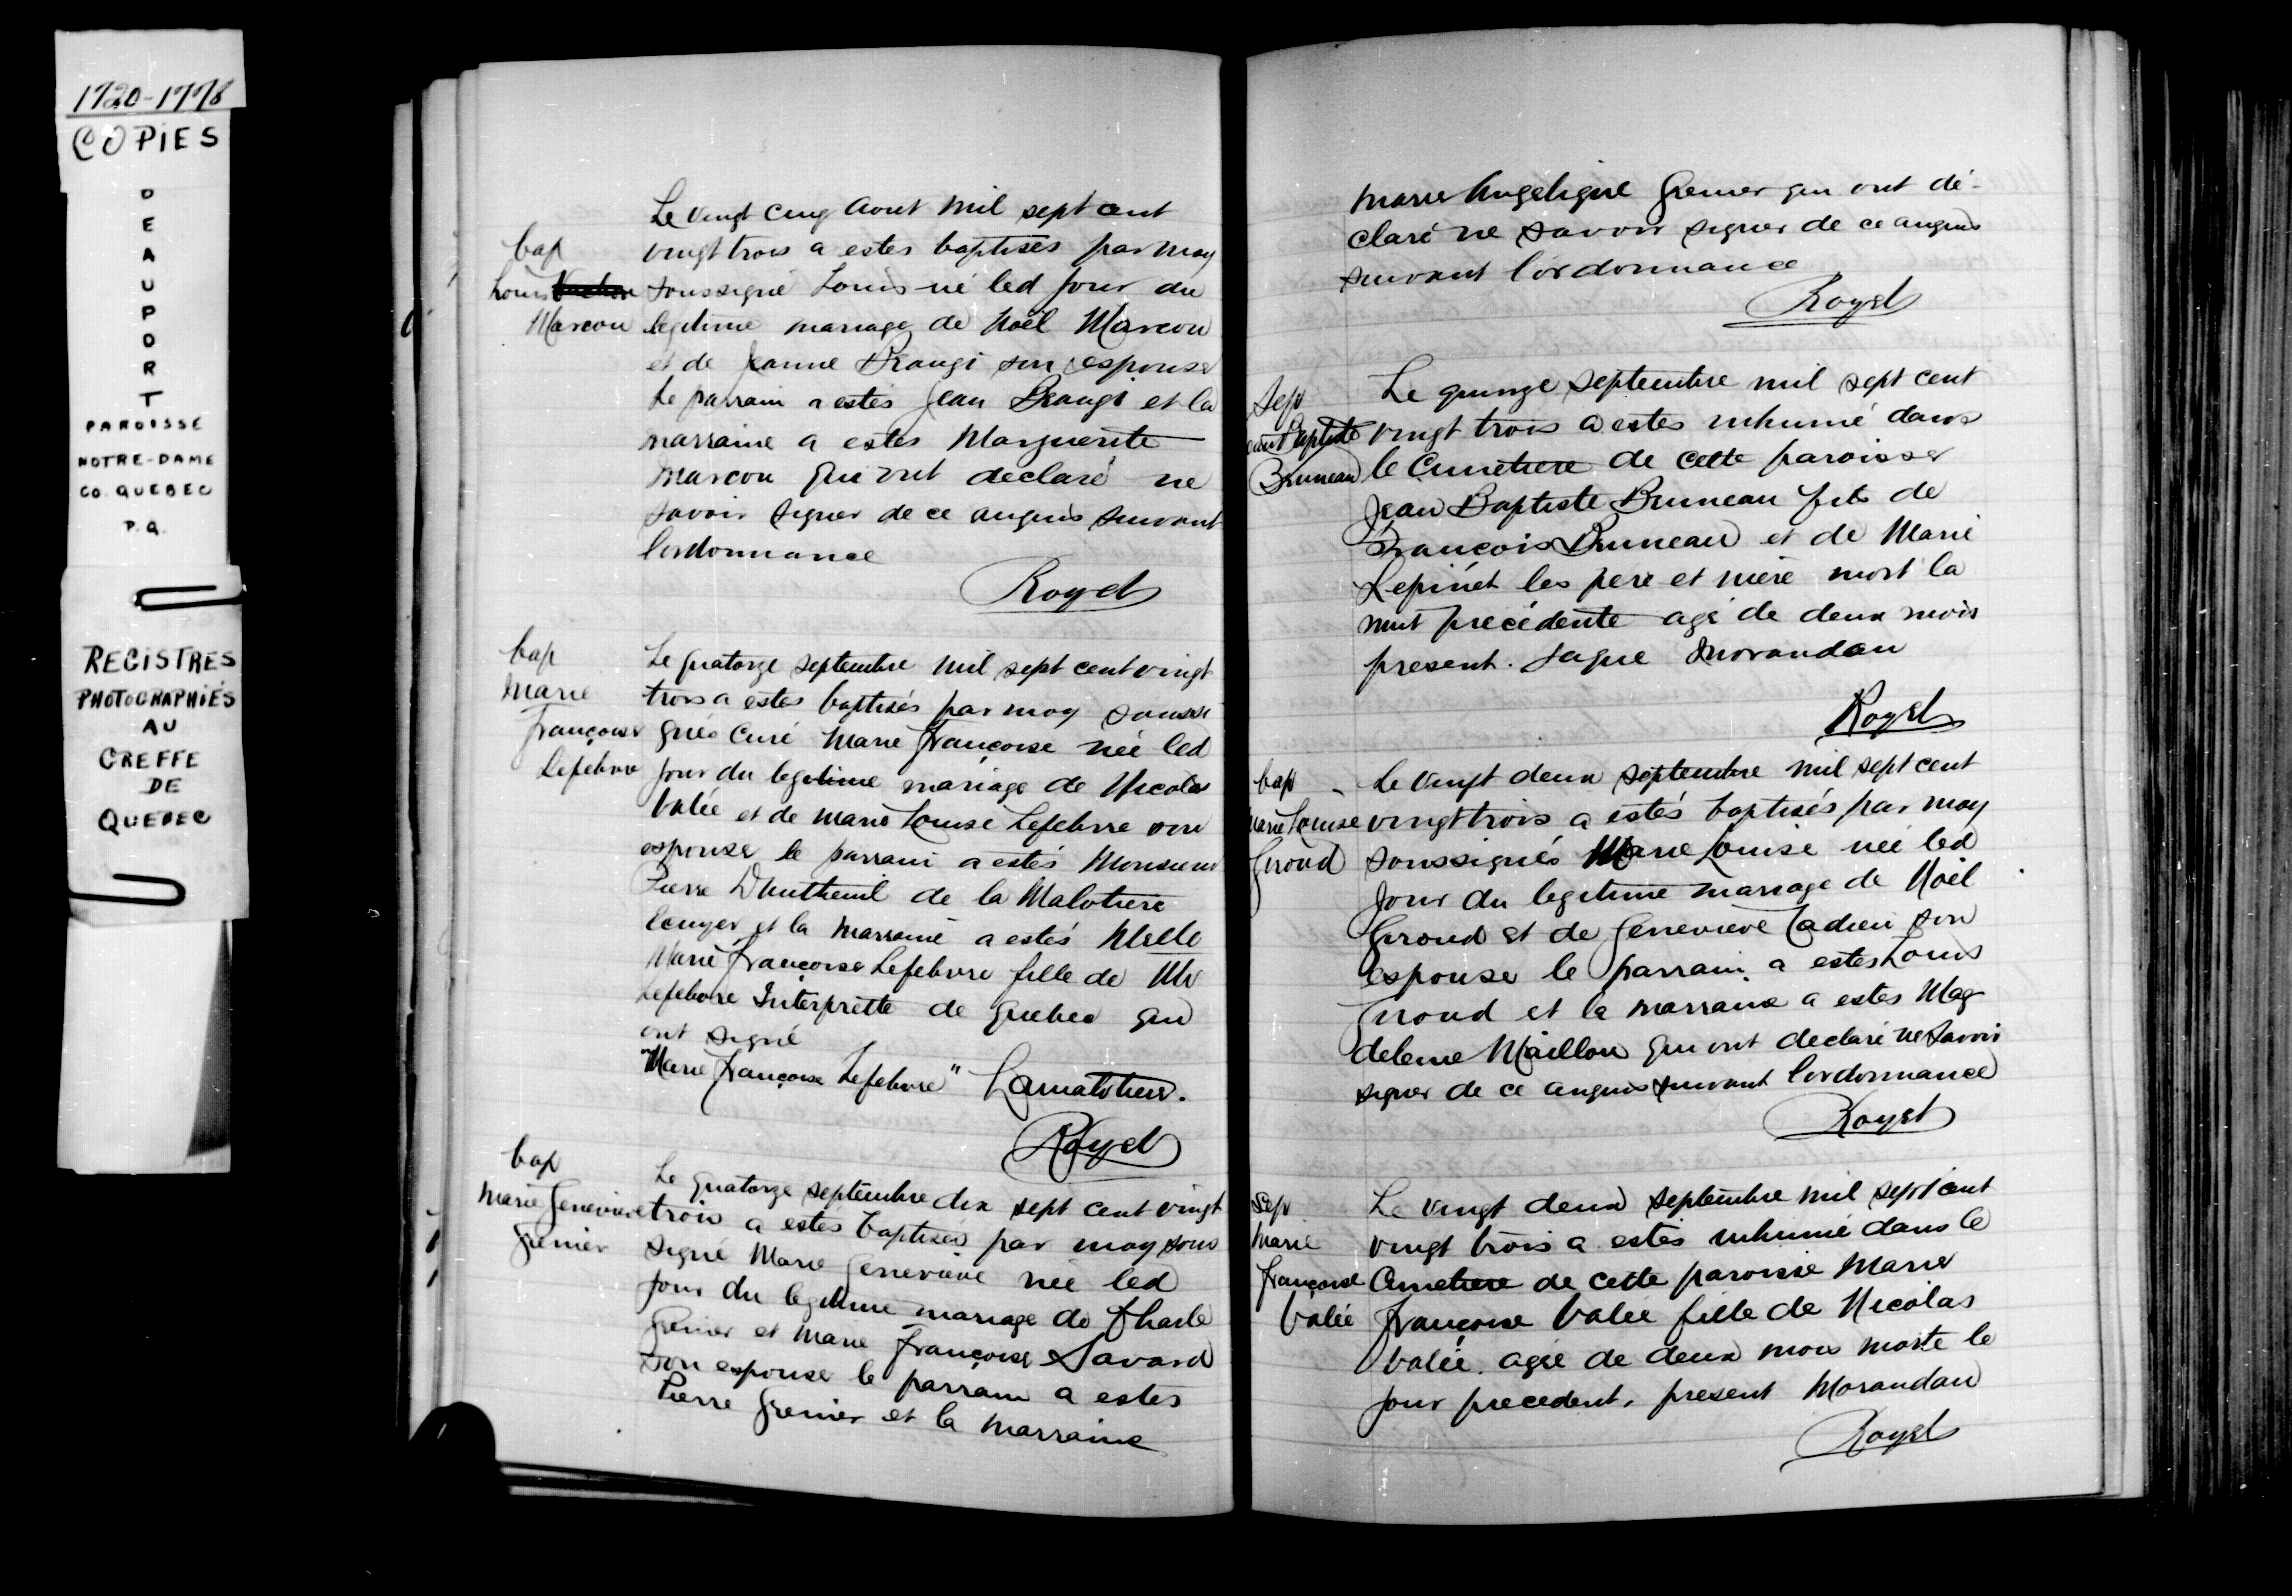 1720-1778
COPIES
BEAUPORT
PAROISSE
NOTRE-DAME
CO. QUEBEC
P.Q.
REGISTRES
PHOTOGRAPHIÉS
AU
GREFFE
DE
QUEBEC
bap
Louis
Marcou
Le vingt cinq Aout mil sept cent
vingt trois a estes baptisés par moy
soussigné Louis né led jour du
legitime mariage de Noël Marcou
et de Jeanne Drangi son espouse
Le parrain a estés Jean Drangi et la
marraine a estés Marguerite
Marcou qui ont declaré ne
savoir signer de ce anquis suivant
lordonnance
Royel
bap
Marie
françoise
Lefebvre
Le quatorze septembre mil sept cent vingt
trois a estés baptisés par moy soussi
gnés Curé Marie françoise née led
jour du legitime mariage de Nicolas
Valée et de Marie Louise Lefebvre son
espouse le parrain a estés Monsieur
Pierre Dhutheuil de la Malotiere
lecuyer et la marraine a estés Melle
Marie françoise Lefebvre fille de Mr
Lefebvre Interprette de quebec qui
ont signé
"Marie françoise Lefebvre" Lamalotiere.
Royel
bap
Marie Genevieve
Grenier
Le quatorze septembre dix sept cent vingt
trois a estes baptisés par moy sous
signé Marie Genevieve née led
jour du legitime mariage de Charle
Grenier et Marie françoise Savard
son espouse le parrain a estes
Pierre Grenier et la marraine
Marie Angelique Grenier qui ont dé-
claré ne savoir signer de ce anquis
suivant l'ordonnance
Royel
Sep
Jean Baptiste
Bruneau
Le quinze septembre mil sept cent
vingt trois a estes inhumé dans
le Cimetiere de cette paroisse
Jean Baptiste Bruneau fils de
François Bruneau et de Marie
Lepinet les pere et mere mort la
nuit precédente agé de deux mois
present. Jaque Morandau
Royel
bap
Marie Louise
Giroud
Le vingt deux septembre mil sept cent
vingt trois a estés baptisés par moy
soussignés Marie Louise née led
jour du legitime mariage de Noël
Giroud et de Genevieve Cadieu son
espouse le parrain a estes Louis
Giroud et la marraine a estes Mag
deleine Maillou qui ont declaré ne savoir
signer de ce anquis suivant l'ordonnance
Royel
Sep
Marie
françoise
Valée
Le vingt deux septembre mil sept cent
vingt trois a estés inhumé dans le
Cimetiere de cette paroisse Marie
françoise Valee fille de Nicolas
Valée. agée de deux mois morte le
jour precedent, present Morandau
Royel